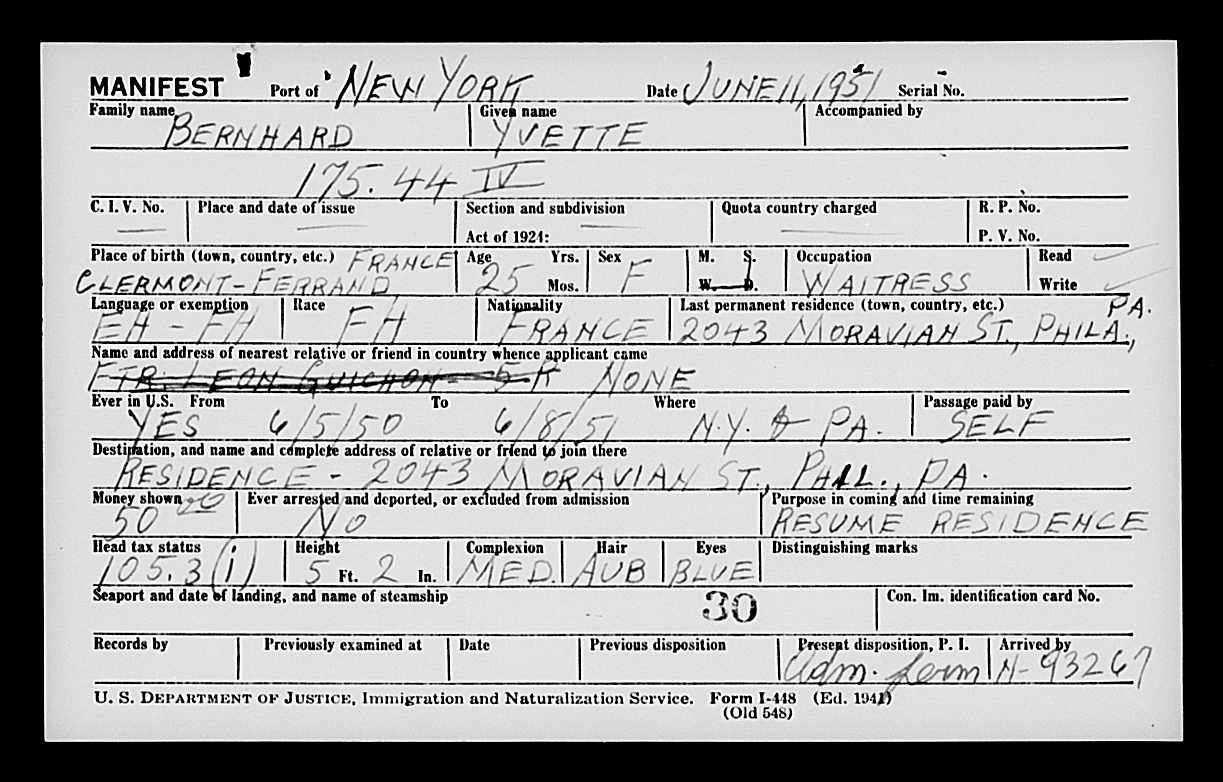 MANIFEST Port of NEW YORK Date JUNE 11, 1951 Serial No.
Family name Given name Accompanied by
BERNHARD YVETTE
175.44 IV
C. I. V. No. Place and date of issue Section and subdivision Quota country charged R. P. No.
Act of 1924: P. V. No.
Place of birth (town, country, etc.) FRANCE Age Yrs. Sex M. S. Occupation Read
CLERMONT-FERRAND 25 Mos. F W. D. WAITRESS Write
Language or exemption Race Nationality Last permanent residence (town, country, etc.) PA.
EH - FH FH FRANCE 2043 MORAVIAN ST., PHILA.,
Name and address of nearest relative or friend in country whence applicant came
FTR: LEON GUICHON - NONE
Ever in U.S. From To Where Passage paid by
YES 6/5/50 6/8/51 N.Y. & PA. SELF
Destination, and name and complete address of relative or friend to join there
RESIDENCE - 2043 MORAVIAN ST., PHIL., PA.
Money shown Ever arrested and deported, or excluded from admission Purpose in coming and time remaining
50 00 NO RESUME RESIDENCE
Head tax status Height Complexion Hair Eyes Distinguishing marks
105.3(i) 5 Ft. 2 In. MED. AUB BLUE
Seaport and date of landing, and name of steamship 30 Con. Im. identification card No.
Records by Previously examined at Date Previous disposition Present disposition, P. I. Arrived by
Adm. perm N-93267
U. S. DEPARTMENT OF JUSTICE, Immigration and Naturalization Service. Form I-448 (Ed. 1941)
(Old 548)